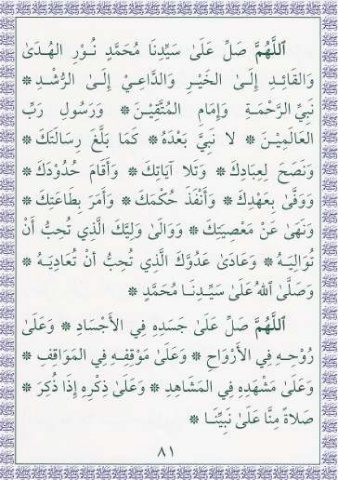 اَللَّهُمَّ صَلِّ عَلَىٰ سَيِّدِنَا مُحَمَّدٍ نُورِ الهُدَىٰ
وَالقَائِدِ إِلَىٰ الخَيْرِ وَالدَّاعِيْ إِلَىٰ الرُّشْدِ ❊
نَبِيِّ الرَّحْمَةِ وَإِمَامِ المُتَّقِيْنَ ❊ وَرَسُولِ رَبِّ
العَالَمِيْنَ ❊ لا نَبِيَّ بَعْدَهُ ❊ كَمَا بَلَّغَ رِسَالَتَكَ ❊
وَنَصَحَ لِعِبَادِكَ ❊ وَتَلا آيَاتِكَ ❊ وَأَقَامَ حُدُودَكَ ❊
وَوَفَّىٰ بِعَهْدِكَ ❊ وَأَنْفَذَ حُكْمَكَ ❊ وَأَمَرَ بِطَاعَتِكَ ❊
وَنَهَىٰ عَنْ مَعْصِيَتِكَ ❊ وَوَالَىٰ وَلِيَّكَ الَّذِي تُحِبُّ أَنْ
تُوَالِيَهُ ❊ وَعَادَىٰ عَدُوَّكَ الَّذِي تُحِبُّ أَنْ تُعَادِيَهُ ❊
وَصَلَّىٰ اللهُ عَلَىٰ سَيِّدِنَا مُحَمَّدٍ ❊
اَللَّهُمَّ صَلِّ عَلَىٰ جَسَدِهِ فِي الأَجْسَادِ ❊ وَعَلَىٰ
رُوْحِهِ فِي الأَرْوَاحِ ❊ وَعَلَىٰ مَوْقِفِهِ فِي المَوَاقِفِ ❊
وَعَلَىٰ مَشْهَدِهِ فِي المَشَاهِدِ ❊ وَعَلَىٰ ذِكْرِهِ إِذَا ذُكِرَ ❊
صَلاةً مِنَّا عَلَىٰ نَبِيِّنَا ❊
٨١